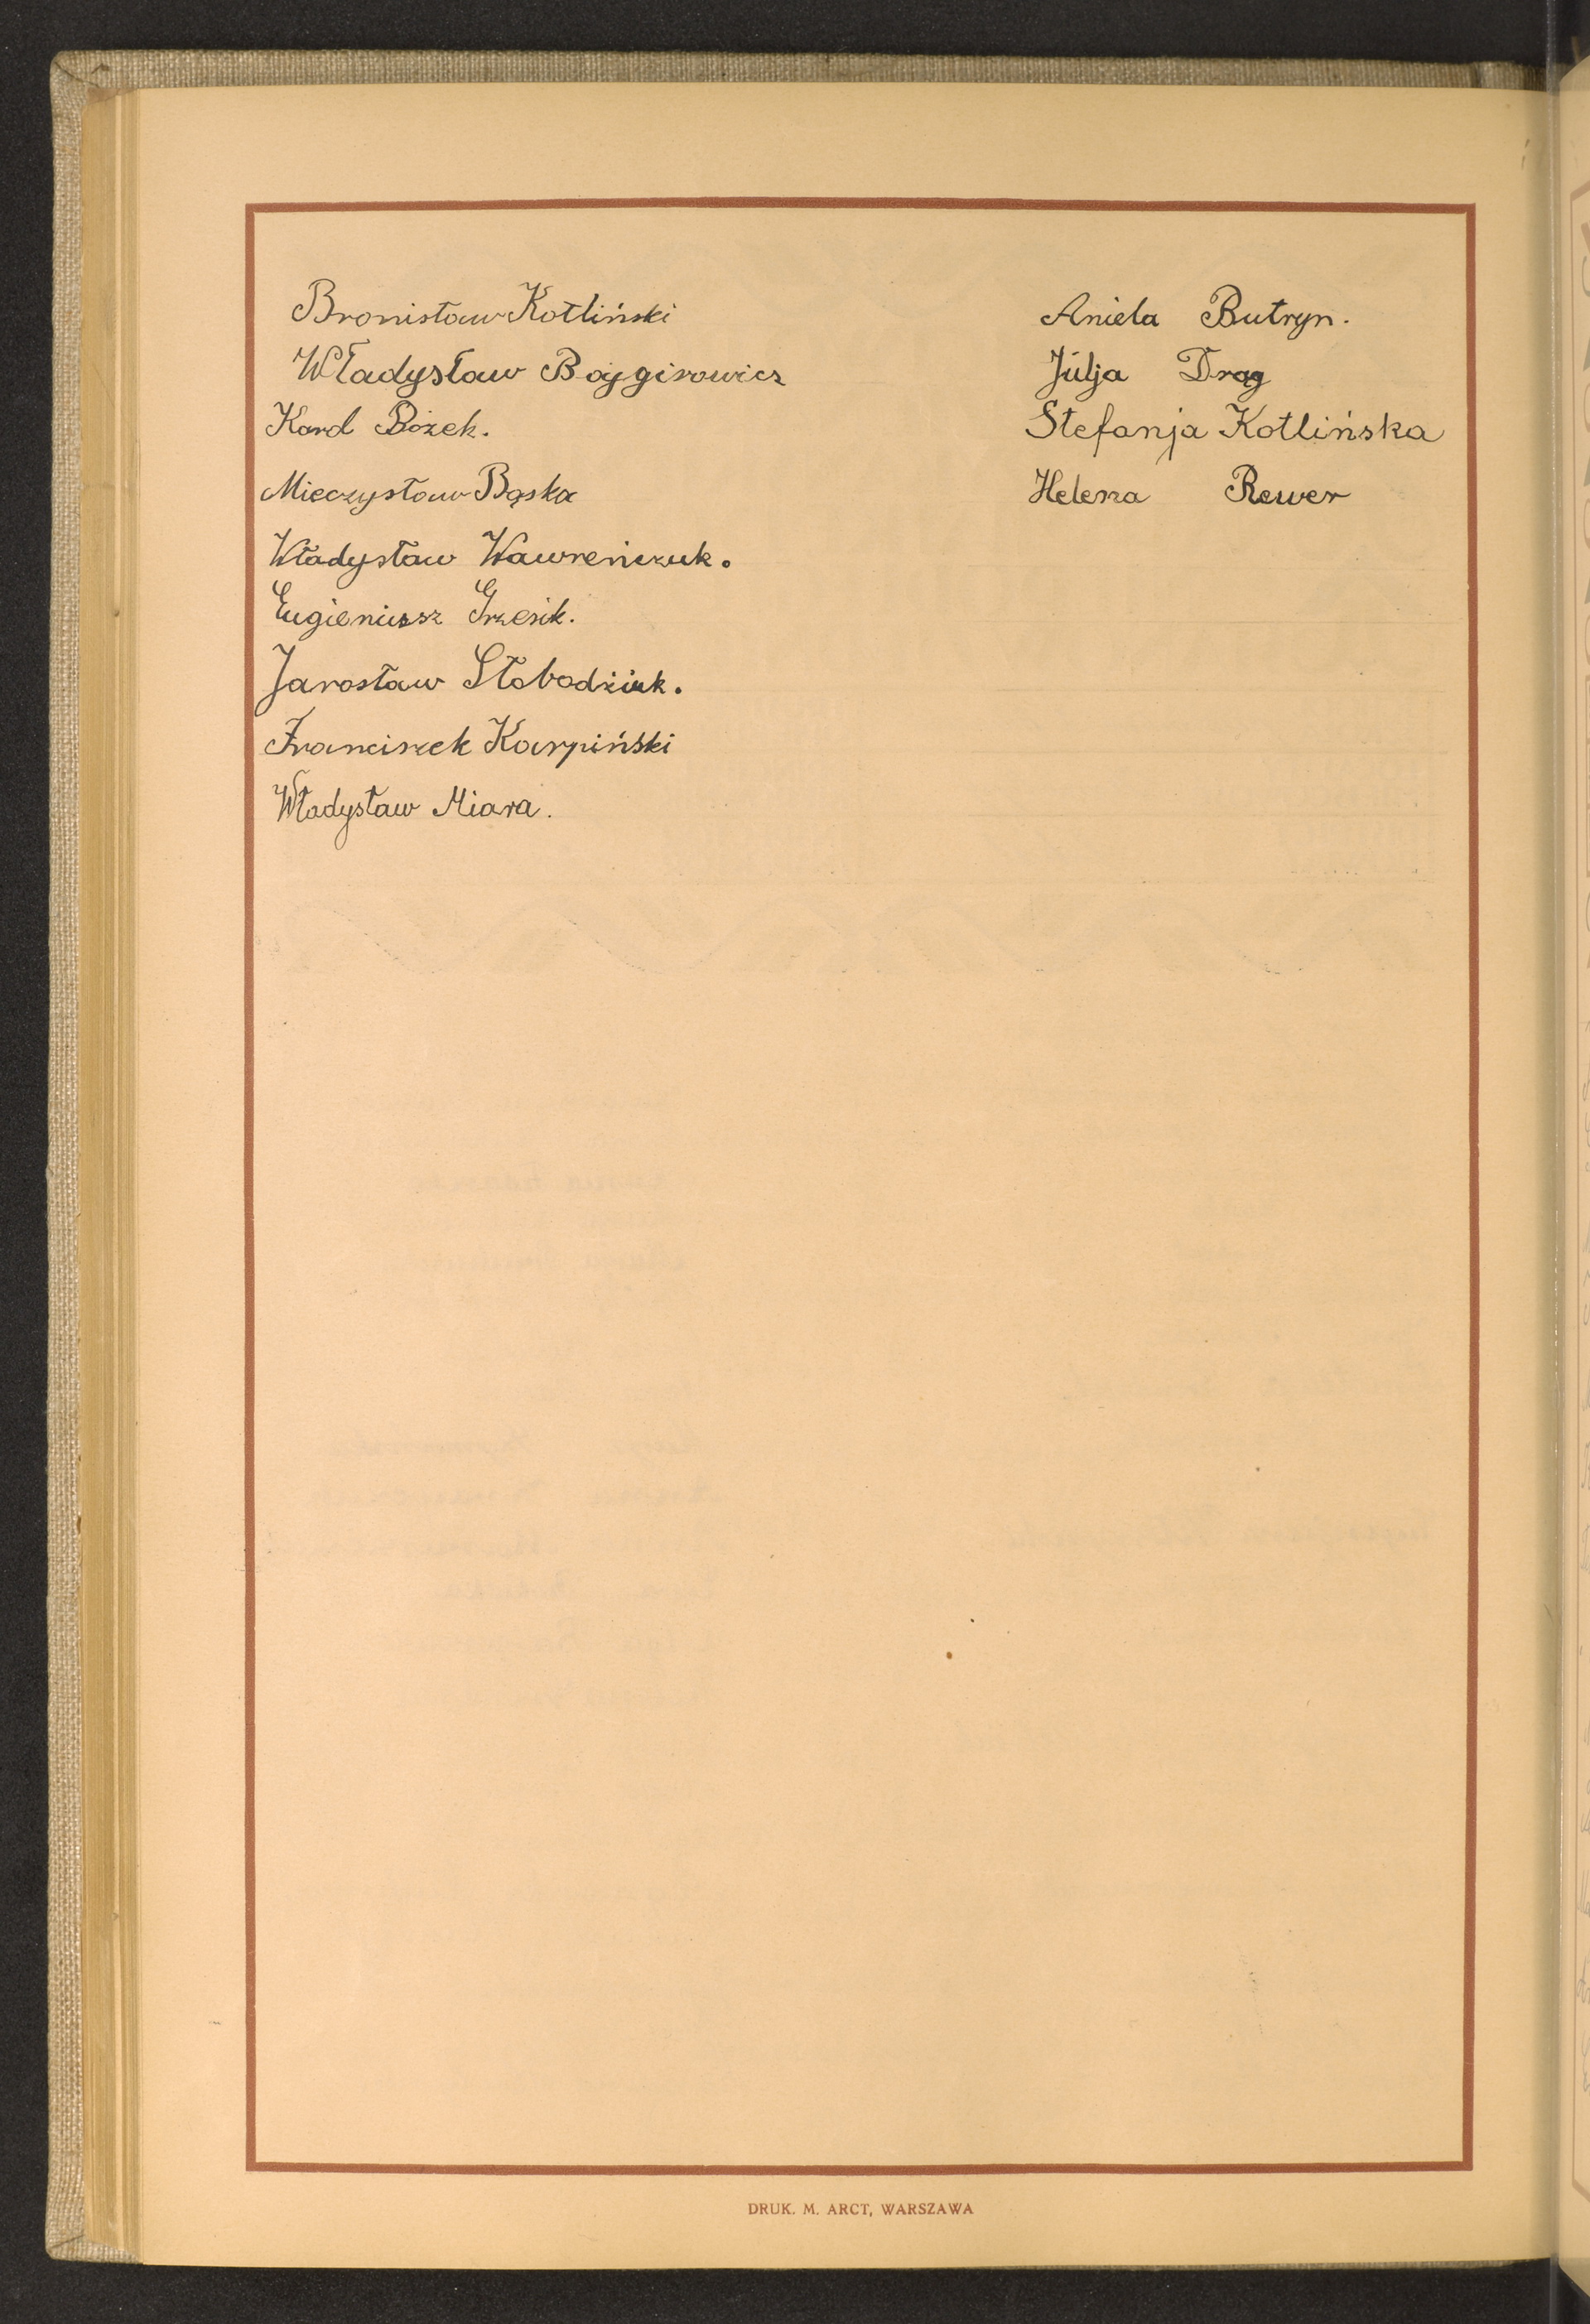 Bronisław Kotliński
Władysław Bojgirowicz
Karol Bożek.
Mieczysław Bąska
Władysław Wawreńczuk.
Eugieniusz Grzesik.
Jarosław Słobodziuk.
Franciszek Karpiński
Władysław Miara.
Aniela Butryn.
Julja Drąg
Stefanja Kotlińska
Helena Rewer
DRUK. M. ARCT, WARSZAWA